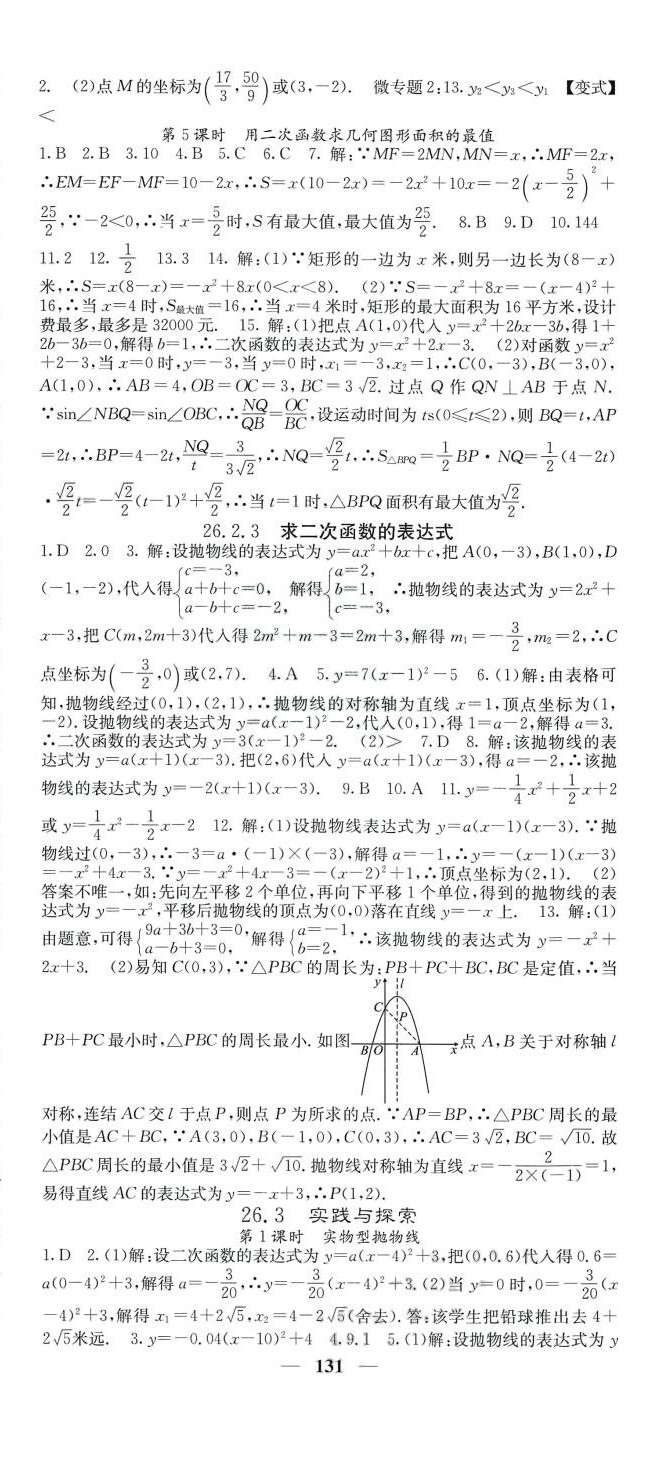 2. (2)点 M 的坐标为(17/3, 50/9)或(3,-2). 微专题 2:13. y₂<y₃<y₁ 【变式】
<
第 5 课时 用二次函数求几何图形面积的最值
1.B 2.B 3.10 4.B 5.C 6.C 7. 解:∵MF=2MN,MN=x,∴MF=2x,
∴EM=EF-MF=10-2x,∴S=x(10-2x)=-2x²+10x=-2(x-5/2)²+
25/2,∵-2<0,∴当 x=5/2时,S 有最大值,最大值为25/2. 8.B 9.D 10.144
11.2 12. 1/2 13.3 14. 解:(1)∵矩形的一边为 x 米,则另一边长为(8-x)
米,∴S=x(8-x)=-x²+8x(0<x<8). (2)∵S=-x²+8x=-(x-4)²+
16,∴当 x=4 时,S最大值=16,∴当 x=4 米时,矩形的最大面积为 16 平方米,设计
费最多,最多是 32000 元. 15. 解:(1)把点 A(1,0)代入 y=x²+2bx-3b,得 1+
2b-3b=0,解得 b=1,∴二次函数的表达式为 y=x²+2x-3. (2)对函数 y=x²
+2-3,当 x=0 时,y=-3,当 y=0 时,x₁=-3,x₂=1,∴C(0,-3),B(-3,0),
A(1,0),∴AB=4,OB=OC=3,BC=3√2. 过点 Q 作 QN⊥AB 于点 N.
∵sin∠NBQ=sin∠OBC,∴NQ/QB=OC/BC,设运动时间为 ts(0≤t≤2),则 BQ=t,AP
=2t,∴BP=4-2t,NQ/t=3/3√2,∴NQ=√2/2 t,∴S△BPQ=1/2 BP·NQ=1/2(4-2t)
·√2/2 t=-√2/2(t-1)²+√2/2,∴当 t=1 时,△BPQ 面积有最大值为√2/2.
26.2.3 求二次函数的表达式
1.D 2.0 3. 解:设抛物线的表达式为 y=ax²+bx+c,把 A(0,-3),B(1,0),D
(-1,-2),代入得{c=-3, a+b+c=0, a-b+c=-2, 解得{a=2, b=1, c=-3, ∴抛物线的表达式为 y=2x²+
x-3,把 C(m,2m+3)代入得 2m²+m-3=2m+3,解得 m₁=-3/2,m₂=2,∴C
点坐标为(-3/2,0)或(2,7). 4.A 5.y=7(x-1)²-5 6.(1)解:由表格可
知,抛物线经过(0,1),(2,1),∴抛物线的对称轴为直线 x=1,顶点坐标为(1,
-2).设抛物线的表达式为 y=a(x-1)²-2,代入(0,1),得 1=a-2,解得 a=3.
∴二次函数的表达式为 y=3(x-1)²-2. (2)> 7.D 8. 解:该抛物线的表
达式为 y=a(x+1)(x-3).把(2,6)代入 y=a(x+1)(x-3),得 a=-2,∴该抛
物线的表达式为 y=-2(x+1)(x-3). 9.B 10.A 11.y=-1/4x²+1/2x+2
或 y=1/4x²-1/2x-2 12. 解:(1)设抛物线表达式为 y=a(x-1)(x-3).∵抛
物线过(0,-3),∴-3=a·(-1)×(-3),解得 a=-1,∴y=-(x-1)(x-3)
=-x²+4x-3.∵y=-x²+4x-3=-(x-2)²+1,∴顶点坐标为(2,1). (2)
答案不唯一,如:先向左平移 2 个单位,再向下平移 1 个单位,得到的抛物线的表
达式为 y=-x²,平移后抛物线的顶点为(0,0)落在直线 y=-x 上. 13. 解:(1)
由题意,可得{9a+3b+3=0, a-b+3=0, 解得{a=-1, b=2, ∴该抛物线的表达式为 y=-x²+
2x+3. (2)易知 C(0,3),∵△PBC 的周长为:PB+PC+BC,BC 是定值,∴当
y l
C
P
PB+PC 最小时,△PBC 的周长最小.如图 点 A,B 关于对称轴 l
B O A x
对称,连结 AC 交 l 于点 P,则点 P 为所求的点.∵AP=BP,∴△PBC 周长的最
小值是 AC+BC,∵A(3,0),B(-1,0),C(0,3),∴AC=3√2,BC=√10.故
△PBC 周长的最小值是 3√2+√10.抛物线对称轴为直线 x=-2/(2×(-1))=1,
易得直线 AC 的表达式为 y=-x+3,∴P(1,2).
26.3 实践与探索
第 1 课时 实物型抛物线
1.D 2.(1)解:设二次函数的表达式为 y=a(x-4)²+3,把(0,0.6)代入得 0.6=
a(0-4)²+3,解得 a=-3/20,∴y=-3/20(x-4)²+3.(2)当 y=0 时,0=-3/20(x
-4)²+3,解得 x₁=4+2√5,x₂=4-2√5(舍去).答:该学生把铅球推出去 4+
2√5米远. 3.y=-0.04(x-10)²+4 4.9.1 5.(1)解:设抛物线的表达式为 y
— 131 —